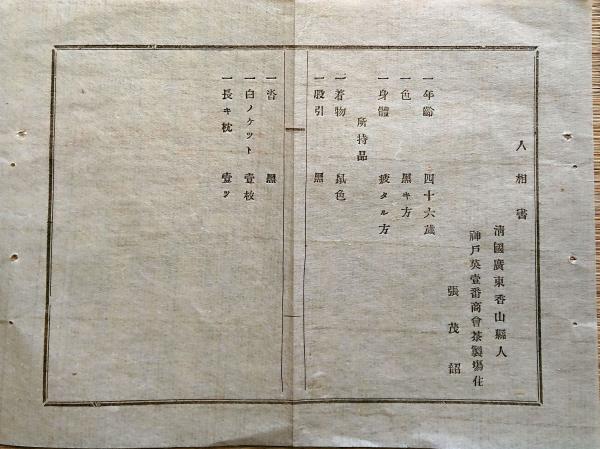 人相書
清國廣東香山縣人
神戸英壹番商會茶製塲住
張茂韶
一年齡 四十六歲
一色 黑キ方
一身體 疲タル方
所持品
一着物 鼠色
一股引 黑
一沓 黑
一白ノケット 壹枚
一長キ枕 壹ツ